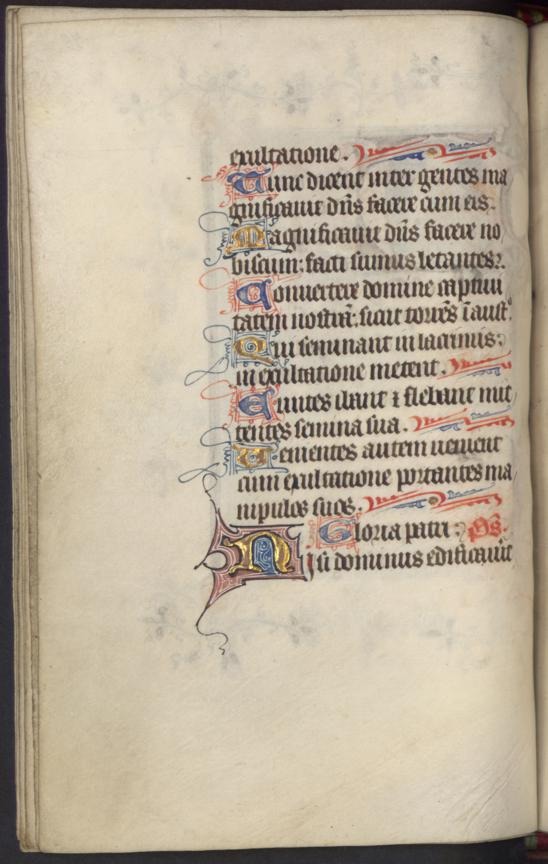 exultatione.
Tunc dicent inter gentes ma
gnificauit dñs facere cum eis.
Magnificauit dñs facere no
biscum: facti sumus letantes.
Conuertere domine captiui
tatem nostrã: sicut torrẽs ĩ aust°
Qui seminant in lacrimis:
in exultatione metent.
Euntes ibant ⁊ flebant mit
tentes semina sua.
Uenientes autem uenient
cum exultatione portantes ma
nipulos suos.
Gloria patri: ps.
Nisi dominus edificauit